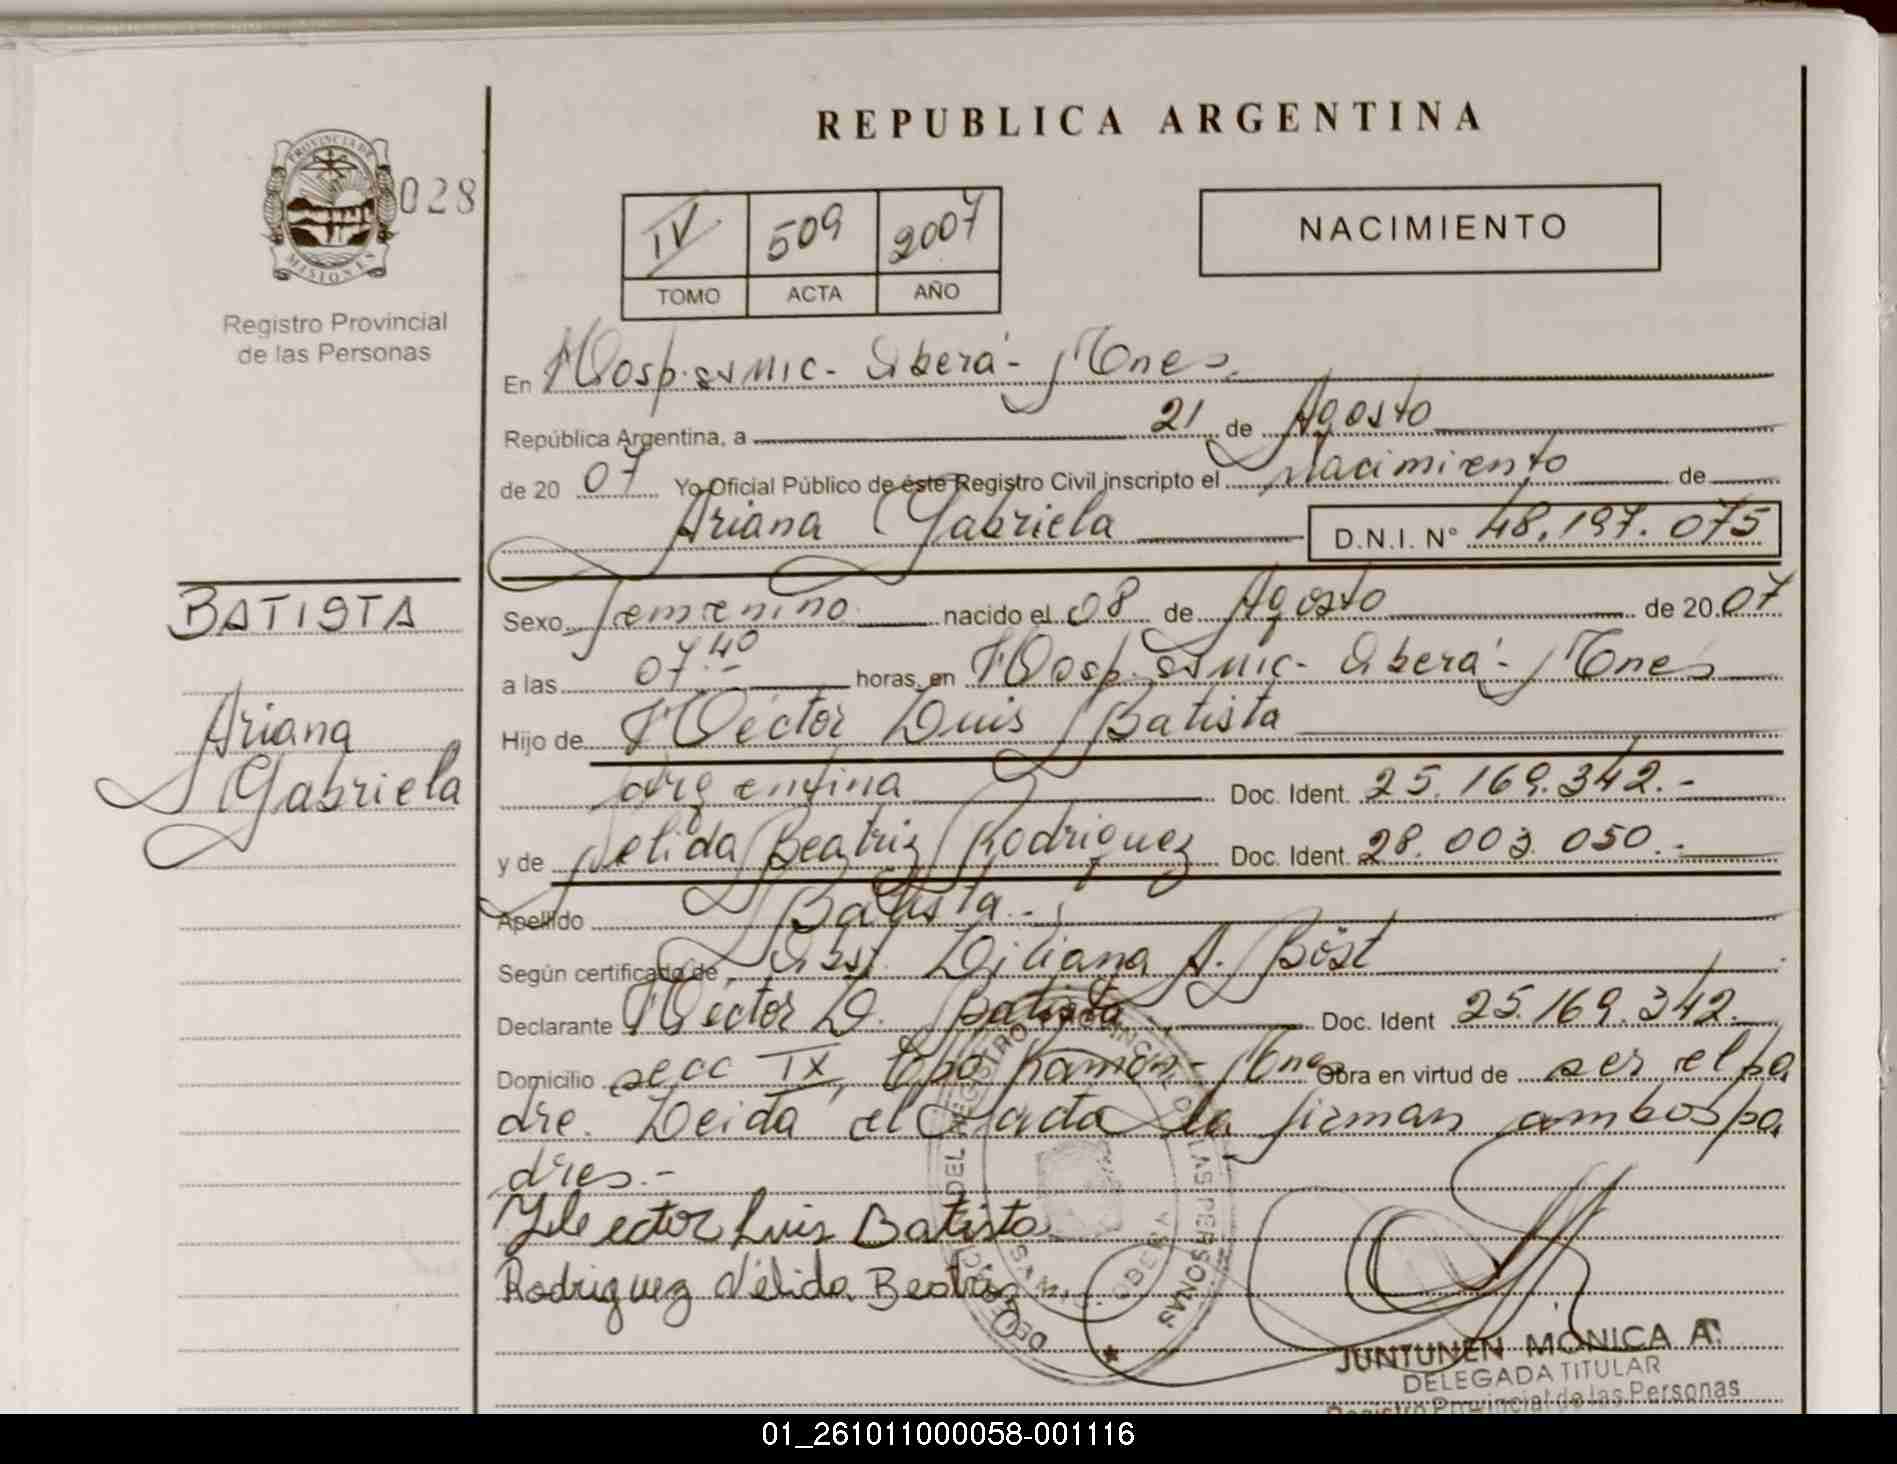 REPUBLICA ARGENTINA
PROVINCIA DE
MISIONES
028
Registro Provincial
de las Personas
IV 509 2007
TOMO ACTA AÑO
NACIMIENTO
En Hosp. SAMIC - Oberá - Mnes.
República Argentina, a 21 de Agosto
de 20 07 Yo Oficial Público de éste Registro Civil inscripto el Nacimiento de
Ariana Gabriela D.N.I. N° 48.197.075
BATISTA
Ariana
Gabriela
Sexo Femenino nacido el 08 de Agosto de 20 07
a las 07.40 horas, en Hosp. SAMIC - Oberá - Mnes
Hijo de Héctor Luis Batista
Argentina Doc. Ident. 25.169.342.-
y de Nelida Beatriz Rodriguez Doc. Ident. 28.003.050.-
Apellido Batista.-
Según certificado de Obst. Liliana A. Böst
Declarante Héctor L. Batista Doc. Ident 25.169.342.
Domicilio secc IX, Cpo Ramón - Mnes Obra en virtud de ser el pa
dre. Leida el Acta la firman ambos pa
dres.-
Hector Luis Batista
Rodriguez Nélida Beatriz
JUNTUNEN MONICA A.
DELEGADA TITULAR
Registro Provincial de las Personas
01_261011000058-001116